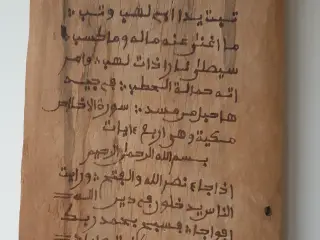 تبت يدا ابے لهب وتب
ما اغنى عنه ماله وما كسب
سيصلى نارا ذات لهب وامر
اته حمالة الحطب فى جيد
ها حبل من مسد سورة الاخلاص
مكية وهى اربع ءايات
بسم الله الرحمن الرحيم
اذا جاء نصر الله والفتح ورايت
الناس يدخلون فى دين الله
افواجا فسبح بحمد ربك